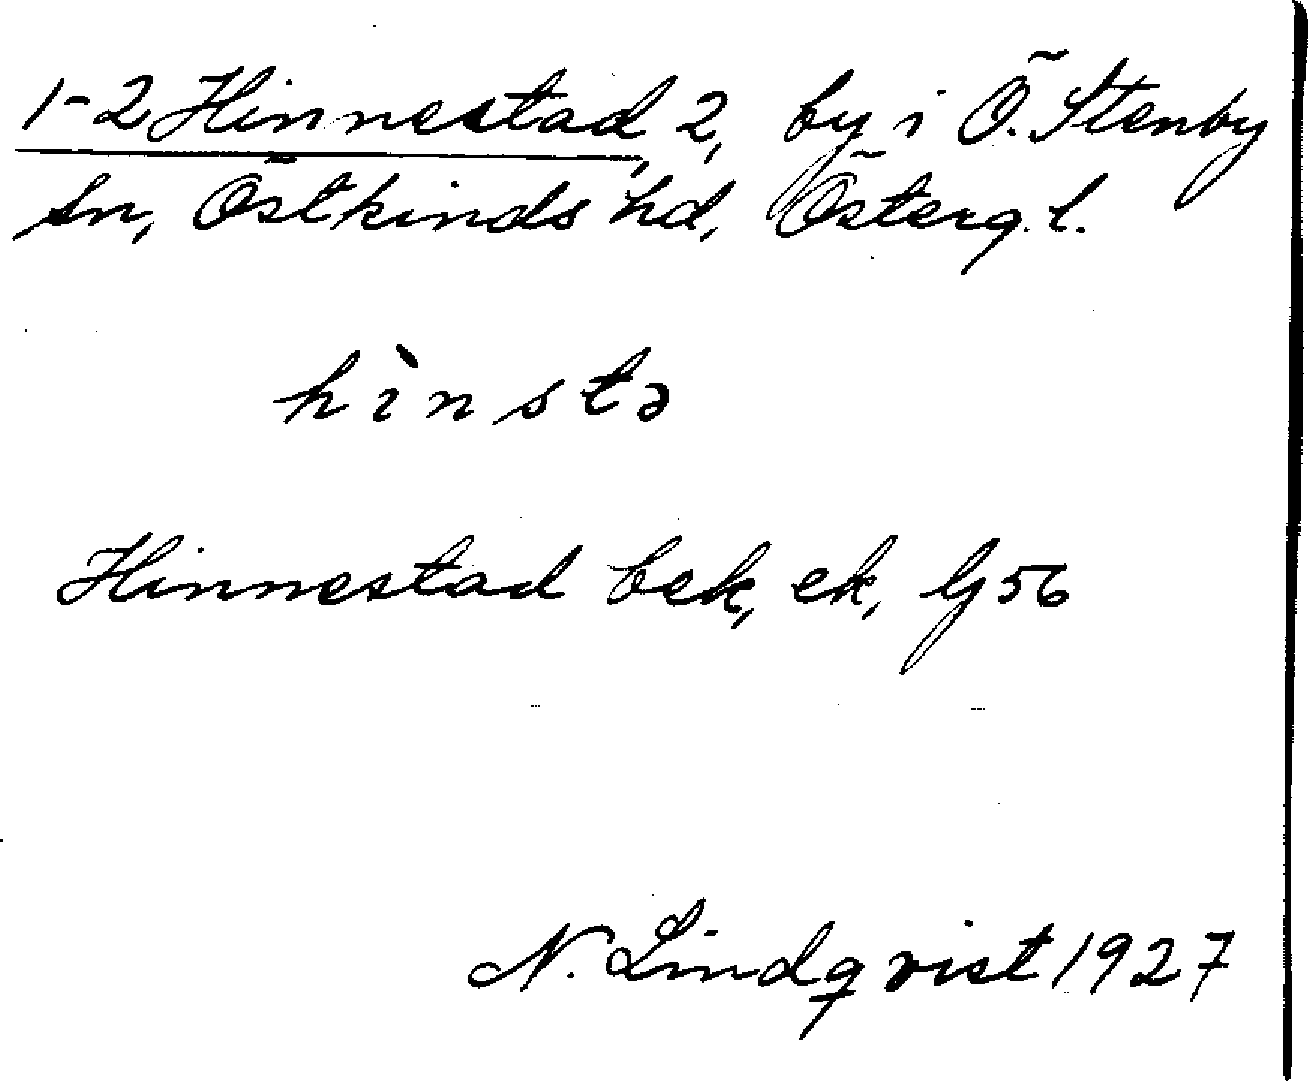 1-2 Hinnestad, 2, by i Ö. Stenby
sn, Östkinds hd, Österg. l.
hìnstə
Hinnestad bek, ek, Gj 56
N. Lindqvist 1927